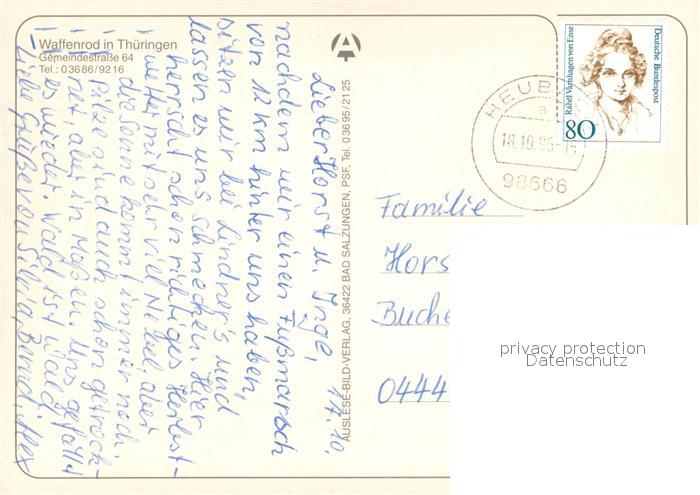 Waffenrod in Thüringen
Gemeindestraße 64
Tel.: 03686/9216
AUSLESE-BILD-VERLAG, 36422 BAD SALZUNGEN, PSF, Tel. 03695/2125
17.10.
Lieber Horst u. Inge,
nachdem wir einen Fußmarsch
von 12 km hinter uns haben,
sitzen wir bei Lindner's und
lassen es uns schmecken. Hier
herrscht schon richtiges Herbst-
wetter mit sehr viel Nebel, aber
die Sonne kommt immer noch.
Pilze sind auch schon getrock-
net, aber in Maßen. Uns gefällt
es wieder. Wald ist Wald!
Liebe Grüße von Silvia, Bernd, Alex
Rahel Varnhagen von Ense
Deutsche Bundespost
80
HEUB
a
18.10.95
98666
Familie
Hors
Buche
0444
privacy protection
Datenschutz